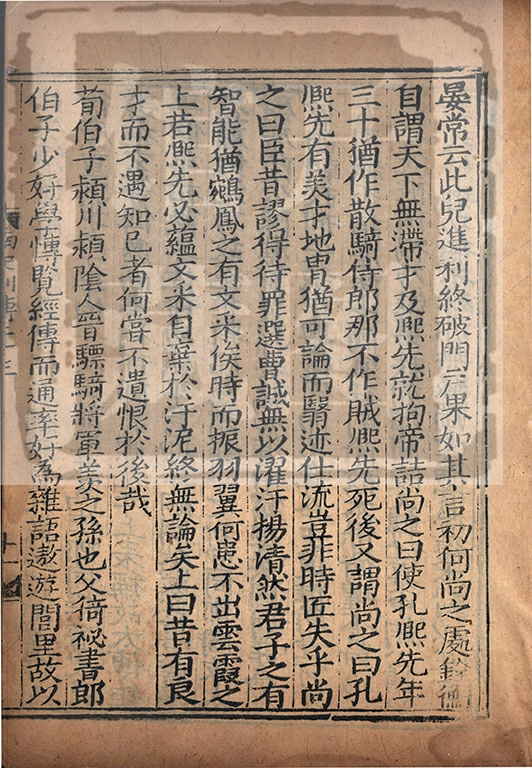 晏常云此兒進利終破門户果如其言初何尚之處銓衡
自謂天下無滯才及熈先就拘帝詰尚之曰使孔熈先年
三十猶作散騎侍郎那不作賊熈先死後又謂尚之曰孔
熈先有美才地胄猶可論而翳迹仕流豈非時匠失乎尚
之曰臣昔謬得待罪選曹誠無以濯汙揚清然君子之有
智能猶鵷鳳之有文米俟時而振羽翼何患不出雲霞之
上若熈先必蘊文米自棄於汙泥終無論矣上曰昔有良
才而不遇知已者何嘗不遺恨於後哉
荀伯子潁川潁隂人晉驃騎將軍羨之孫也父猗祕書郎
伯子少好學愽覧經傳而通率好為雜語遨遊閭里故以